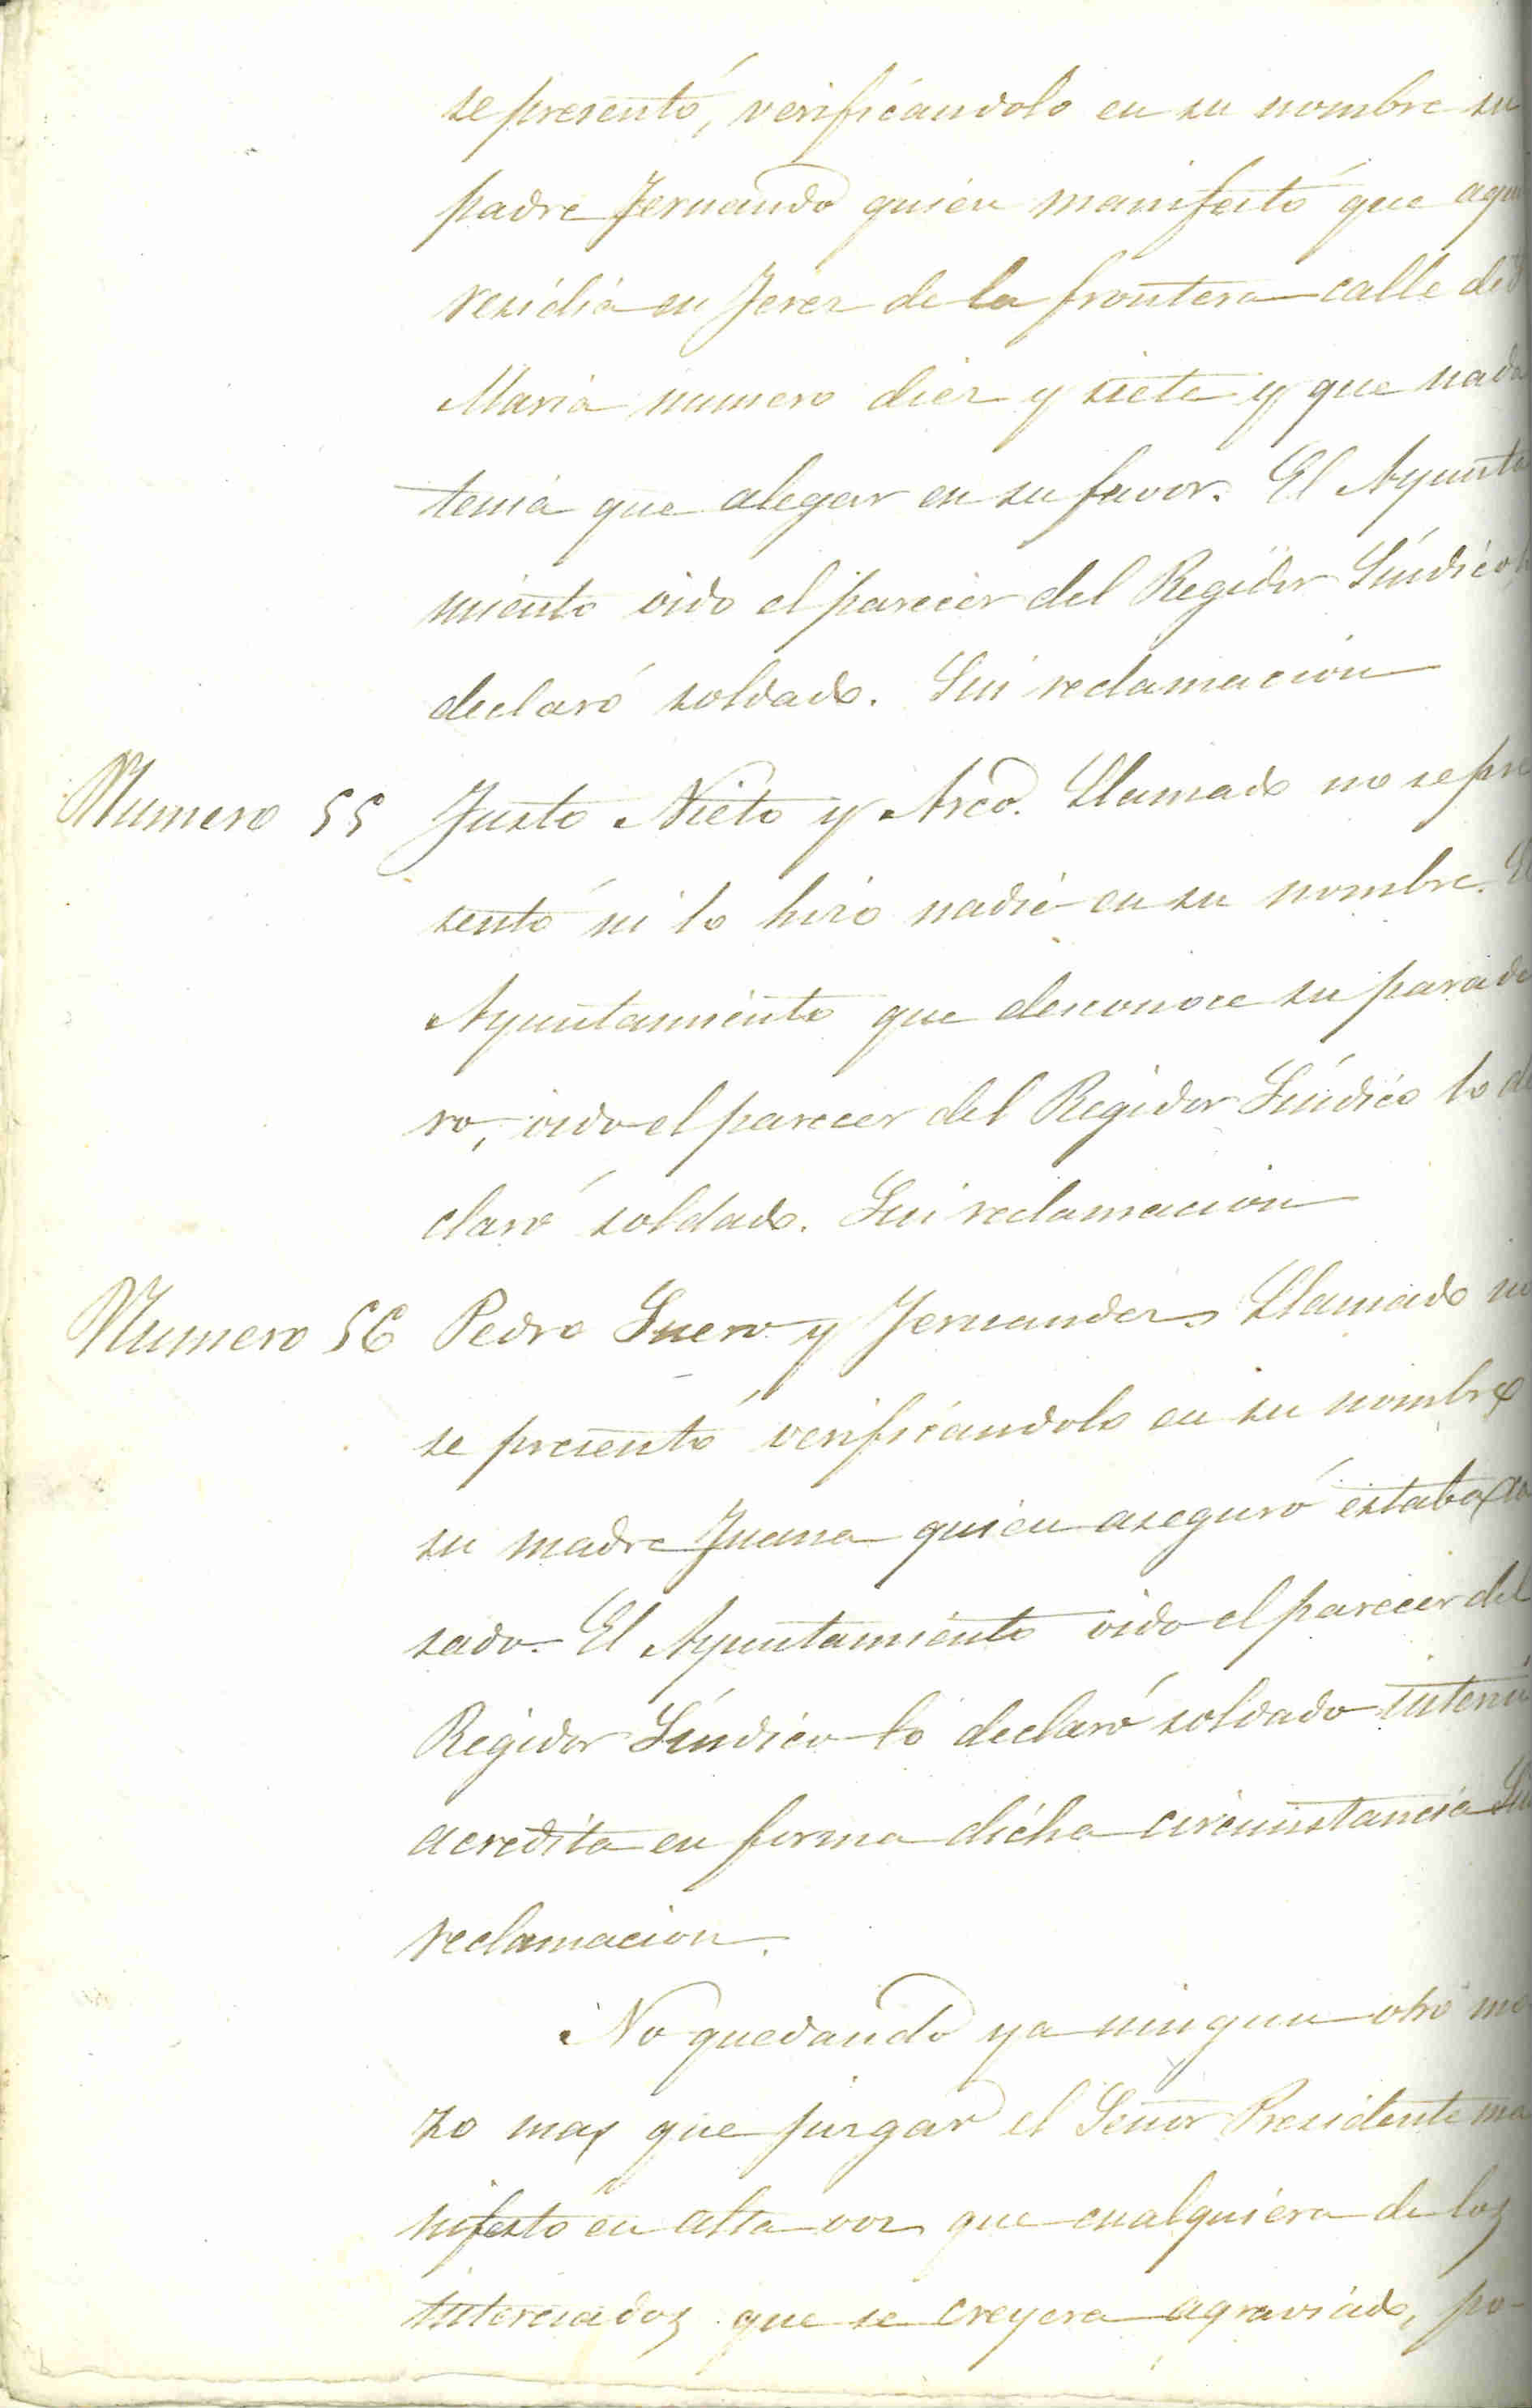 se presentó, verificándolo en su nombre su
padre Fernando quién manifestó que aqu
residia en Jerez de la frontera calle de
Maria numero diez y siete y que nada
tenia que alegar en su favor. El Ayunta
miento oido el parecer del Regidor Síndico
declaró soldado. Sin reclamacion
Numero 55 Justo Nieto y Arco. Llamado no se pre
sentó ni lo hizo nadie en su nombre. El
Ayuntamiento que desconoce su parade
ro, oido el parecer del Regidor Síndico lo de
claró soldado. Sin reclamacion
Numero 56 Pedro Suero y Fernandez. Llamado no
se presentó verificándolo en su nombre
su madre Juana quien aseguró estaba ca
sado. El Ayuntamiento oido el parecer del
Regidor Síndico lo declaró soldado interin
acredita en forma dicha circunstancia Sin
reclamacion.
No quedando ya ningun otro mo
zo mas que juzgar el Señor Presidente ma
nifestó en alta voz que cualquiera de los
interesados que se creyera agraviado, po-